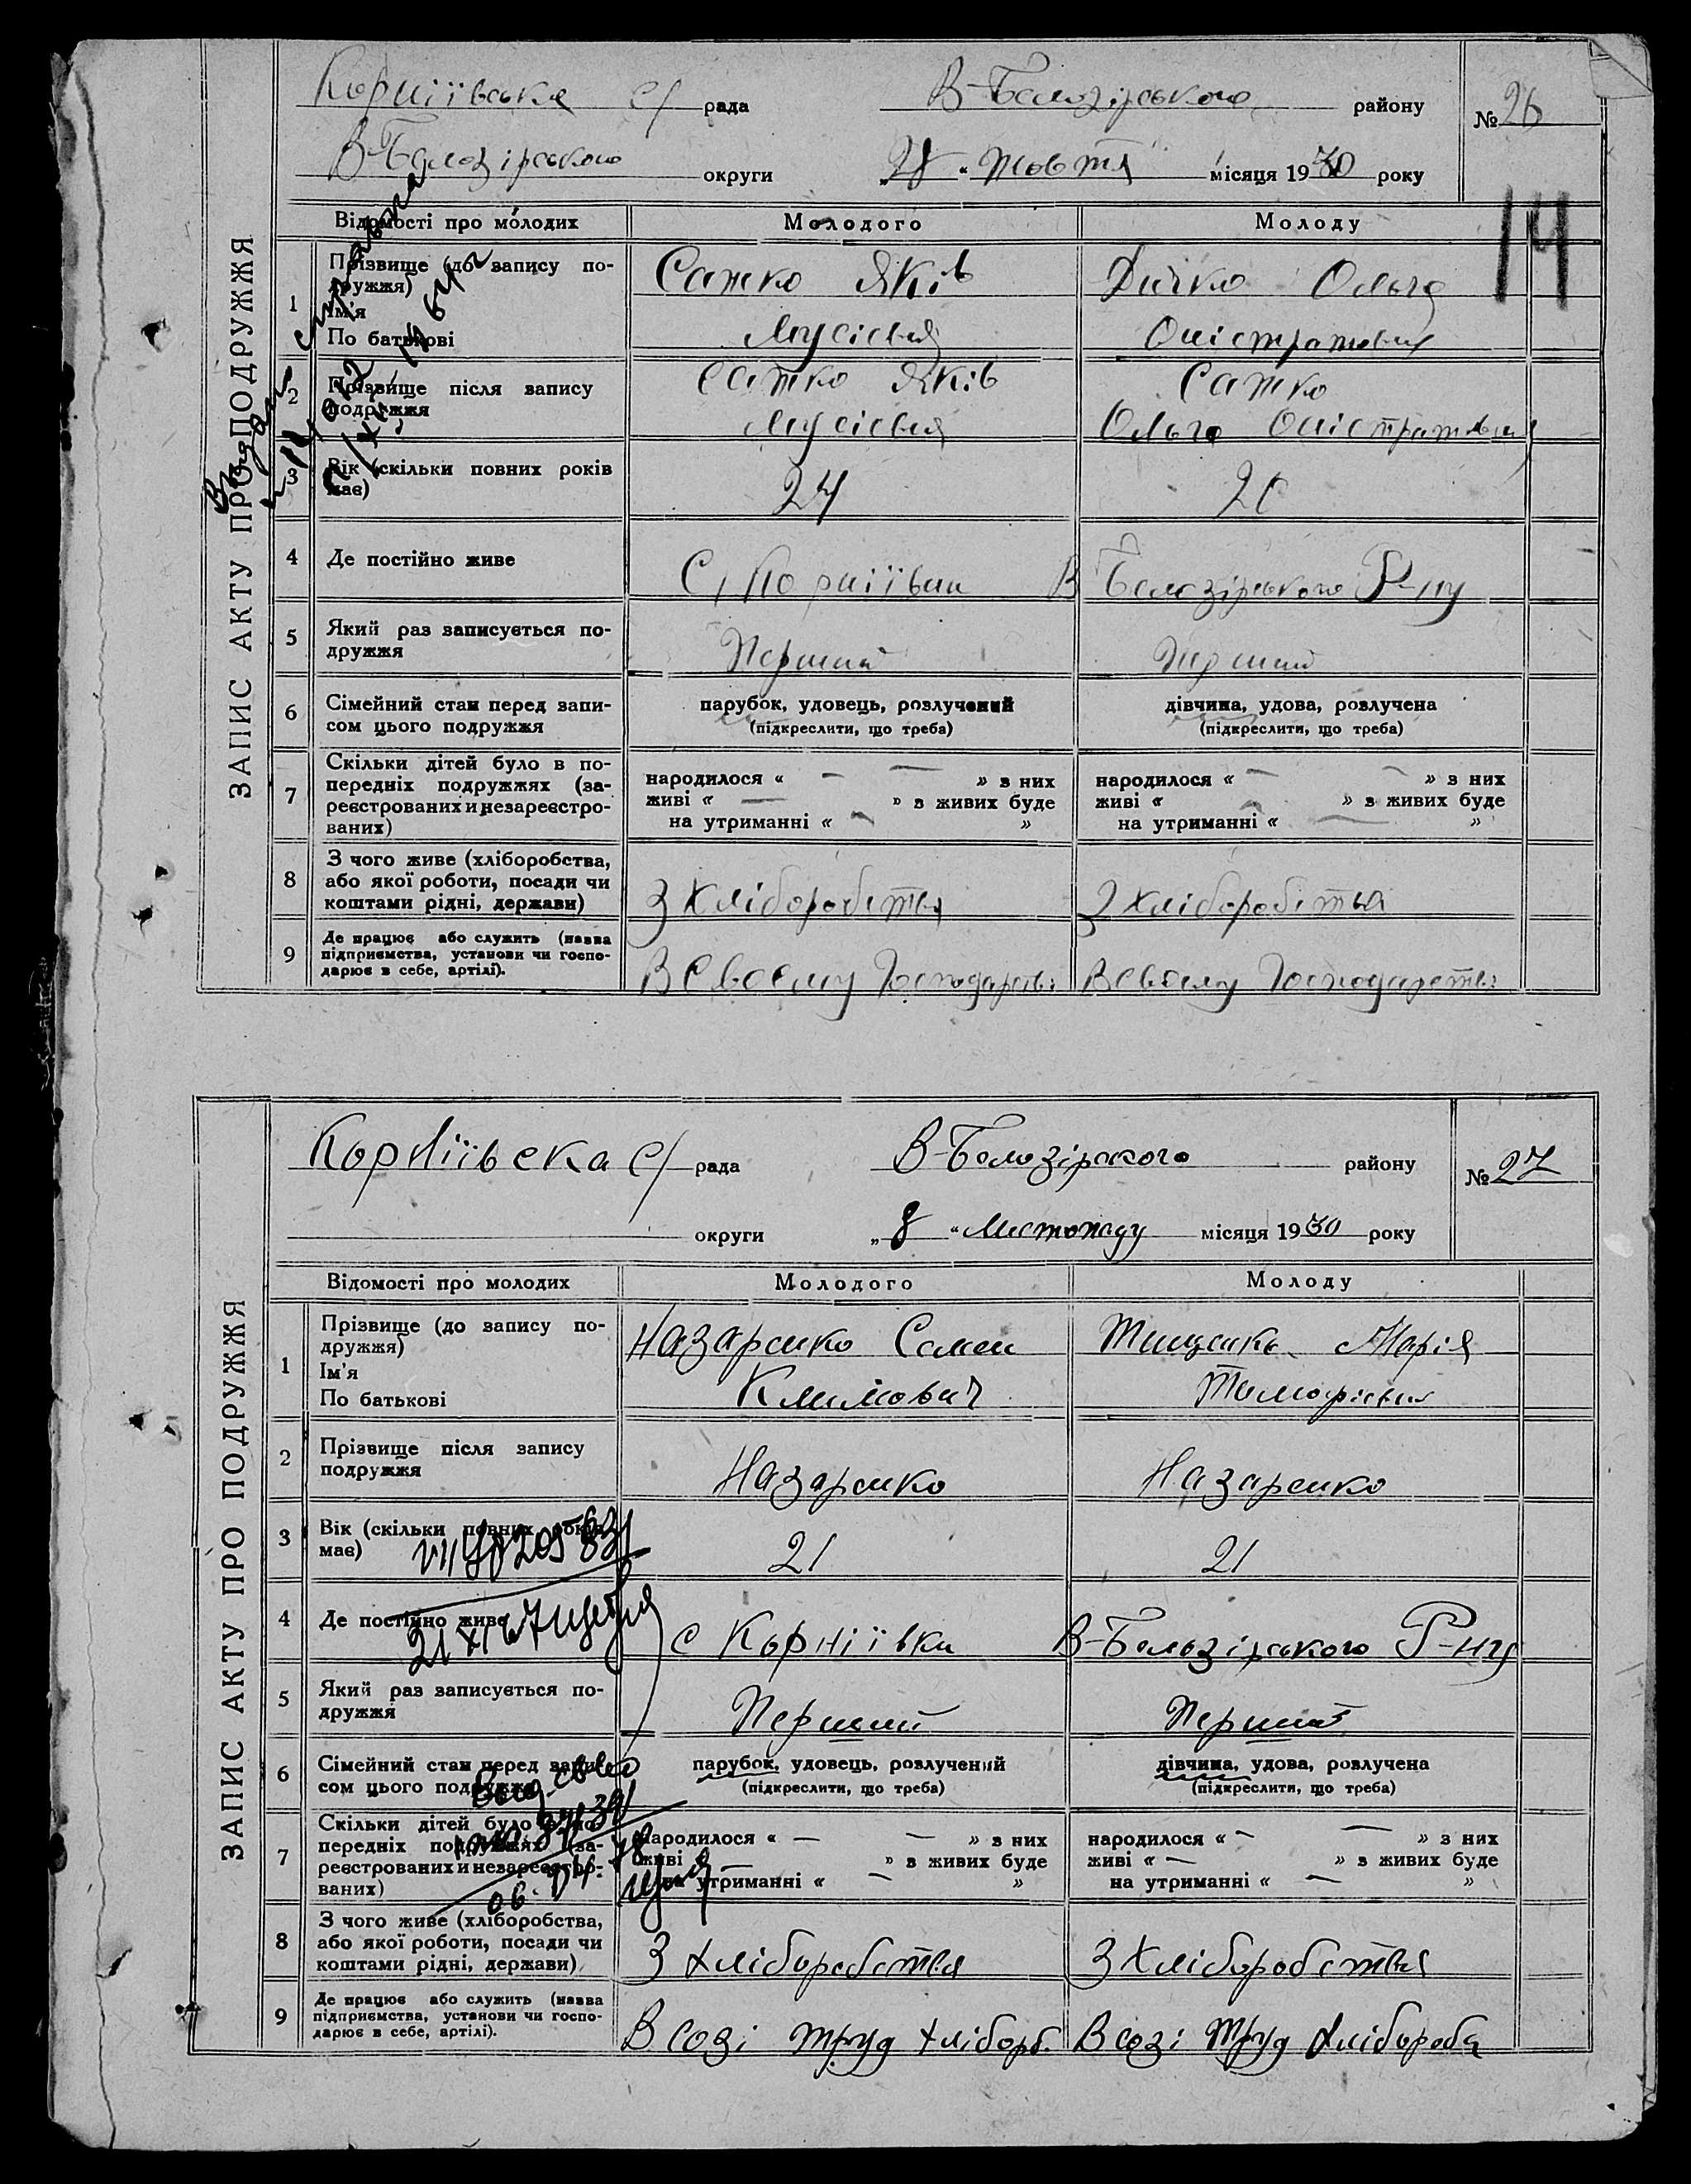 ЗАПИС АКТУ ПРО ПОДРУЖЖЯ
Корніївська с/ рада В-Белозірського району № 26
В-Белозірського округи „28“ Жовтя місяця 1930 року
14
Відомості про молодих Молодого Молоду
1 Прізвище (до запису по-
дружжя)
Ім'я
По батькові
Сажко Яків
Мусієвич
Дичко Ольга
Оністратовна
2 Прізвище після запису
подружжя
Сажко Яків
Мусієвич
Сажко
Ольга Оністратовна
3 Вік (скільки повних років
має)
24
4 Де постійно живе
С, Корніївки В Белозірського Р-ну
5 Який раз записується по-
дружжя
Перший Перший
6 Сімейний стан перед запи-
сом цього подружжя
парубок, удовець, розлучений
(підкреслити, що треба)
дівчина, удова, розлучена
(підкреслити, що треба)
7 Скільки дітей було в по-
передніх подружжях (за-
реєстрованих и незареєстро-
ваних)
народилося « — — » з них
живі « — » з живих буде
на утриманні « — »
народилося « — — » з них
живі « — » з живих буде
на утриманні « — »
8 З чого живе (хліборобства,
або якої роботи, посади чи
коштами рідні, держави)
З Хліборобства З Хліборобства
9 Де працює або служить (назва
підприємства, установи чи госпо-
дарює в себе, артілі).
В Своєму Господарстві В своєму Господарстві
ЗАПИС АКТУ ПРО ПОДРУЖЖЯ
Корніївска с/ рада В-Белозірского району № 27
округи „8“ Листопаду місяця 1930 року
Відомості про молодих Молодого Молоду
1 Прізвище (до запису по-
дружжя)
Ім'я
По батькові
Назаренко Семен
Климович
Тищенко Марія
Тимофієвна
2 Прізвище після запису
подружжя
Назаренко Назаренко
3 Вік (скільки повних років
має)
21 21
4 Де постійно живе
с Корніївки В-Белозірського Р-ну
5 Який раз записується по-
дружжя
Перший Перший
6 Сімейний стан перед запи-
сом цього подружжя
парубок, удовець, розлучений
(підкреслити, що треба)
дівчина, удова, розлучена
(підкреслити, що треба)
7 Скільки дітей було в по-
передніх подружжях (за-
реєстрованих и незареєстро-
ваних)
народилося « — — » з них
живі — » з живих буде
на утриманні « — »
народилося « — — » з них
живі « — » з живих буде
на утриманні « — »
8 З чого живе (хліборобства,
або якої роботи, посади чи
коштами рідні, держави)
З хліборобства З Хліборобства
9 Де працює або служить (назва
підприємства, установи чи госпо-
дарює в себе, артілі).
В созі труд хліборб. В созі Труд хлібороба